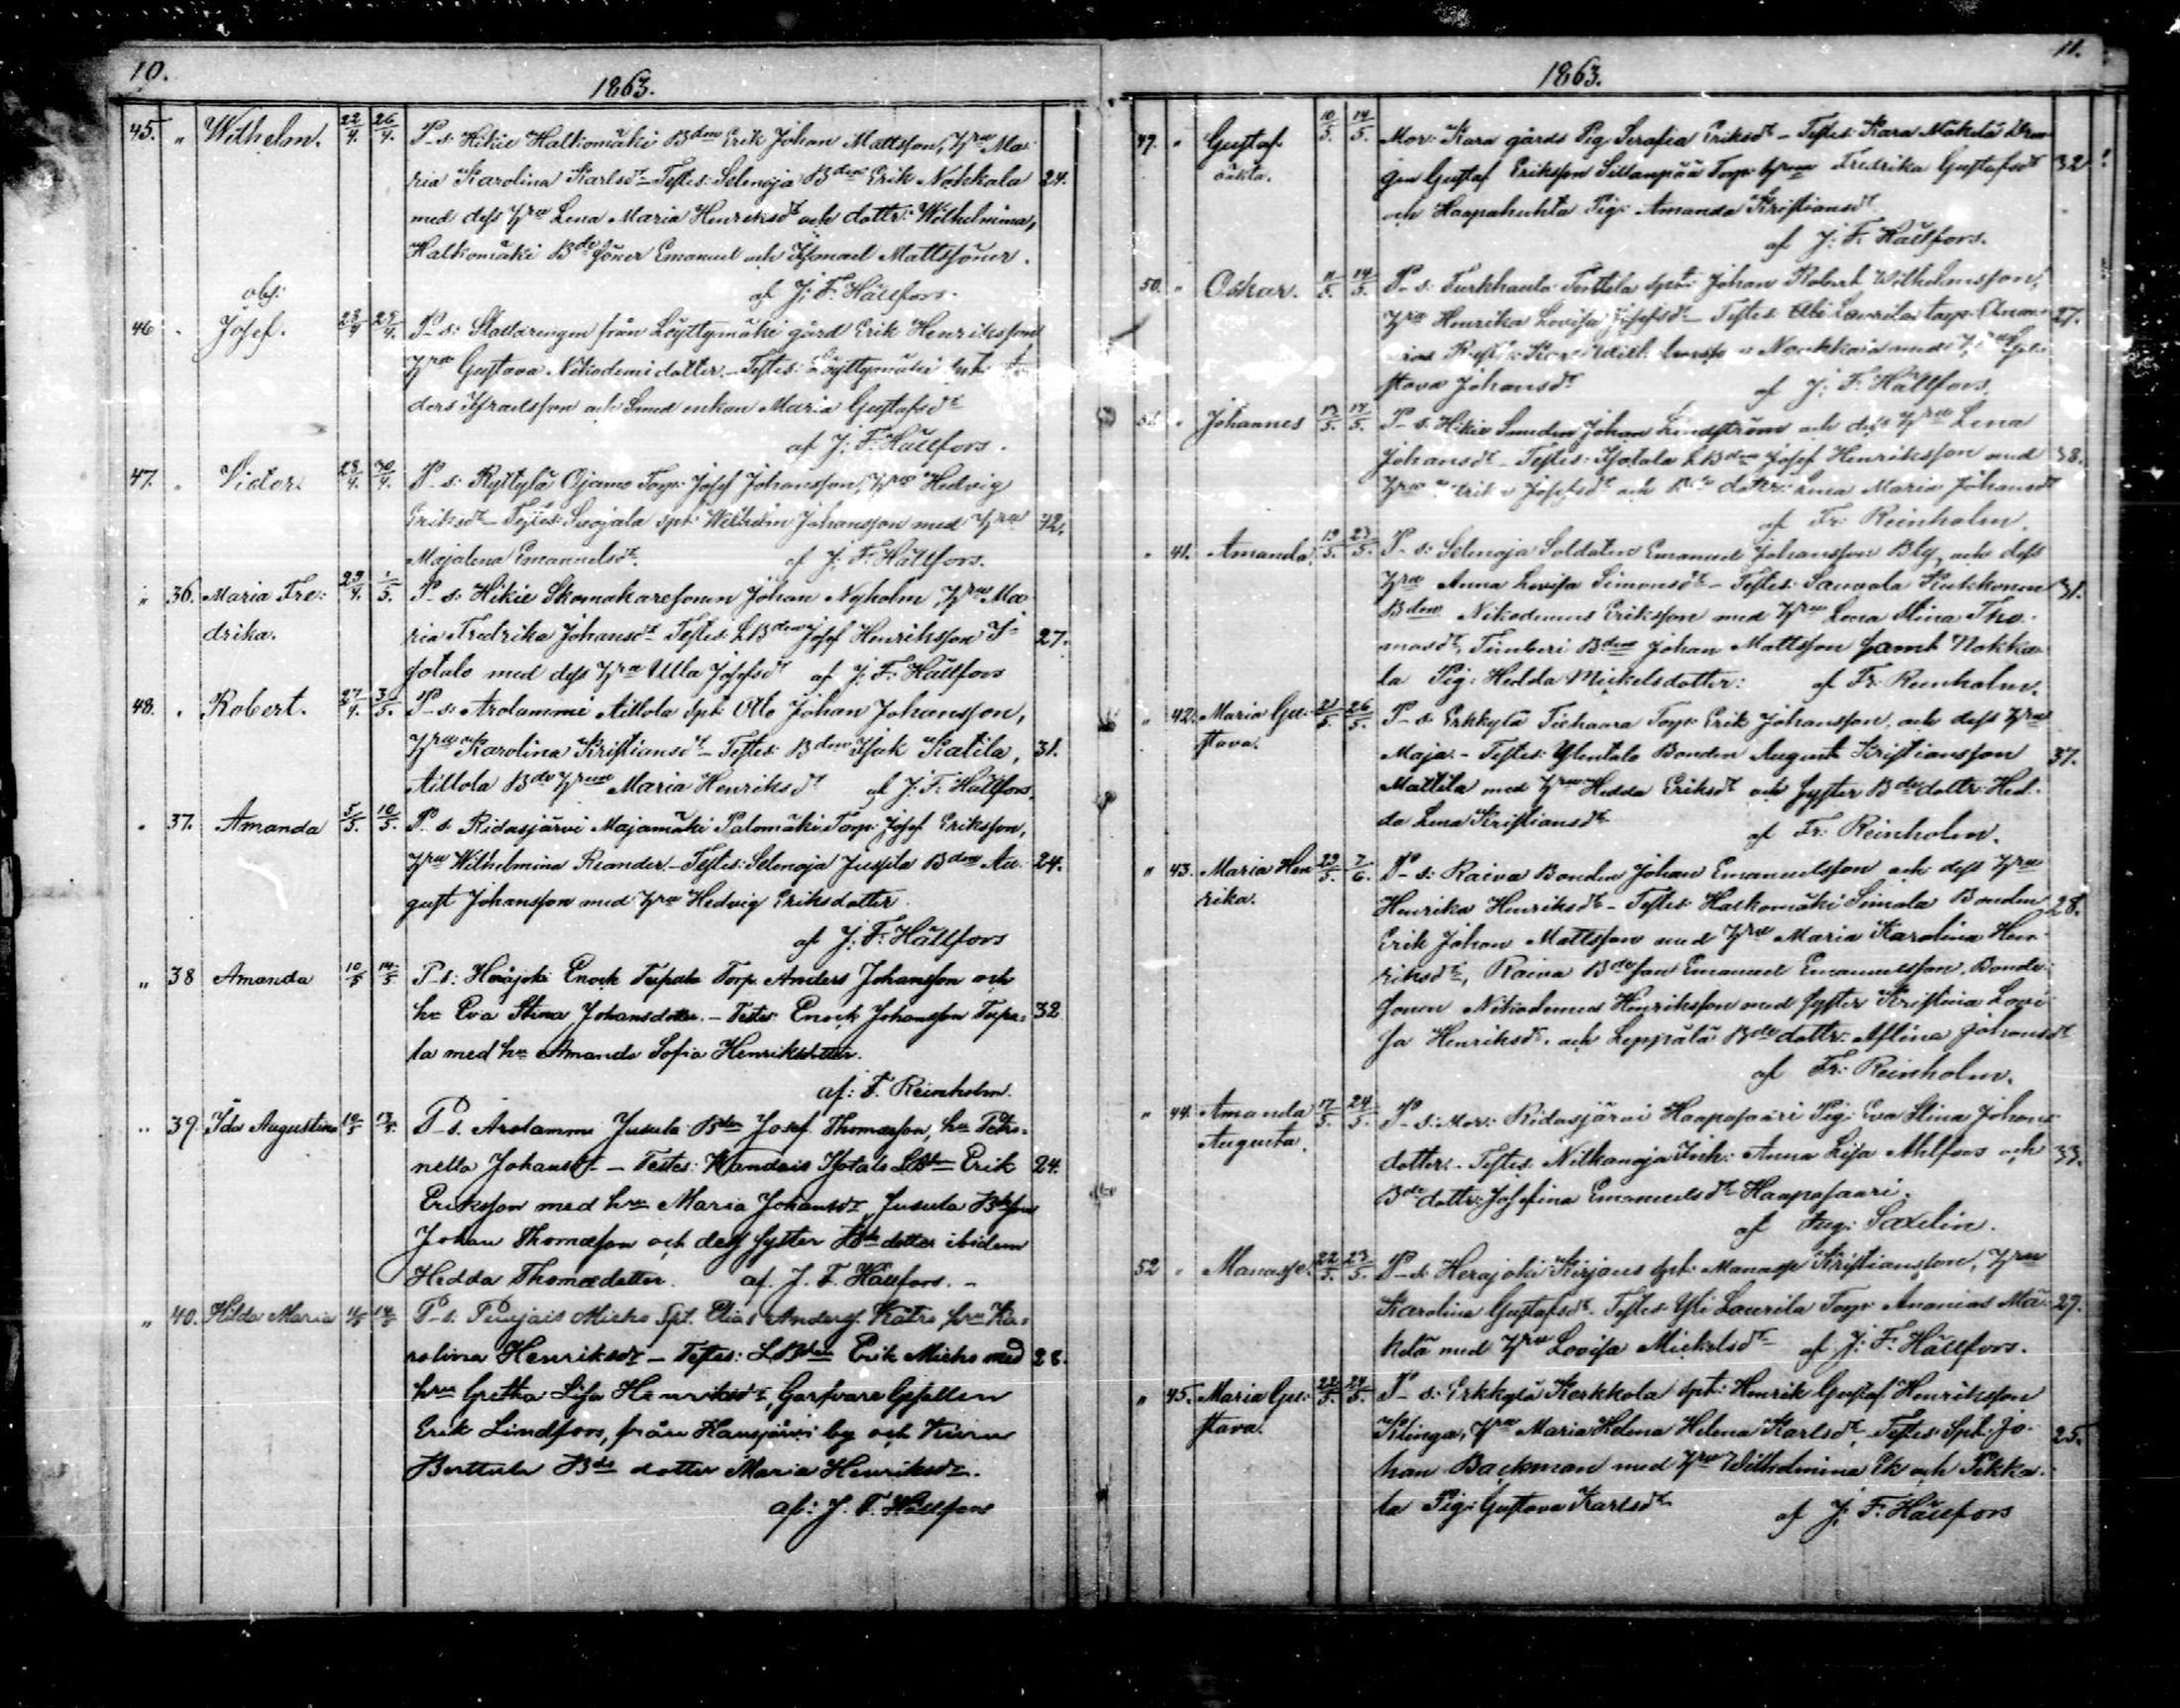 10.
1863.
45. " Wilhelm. 22/4. 26/4. P-s: Hikie Halkomäki Bdn Erik Johan Mattsson, Hru Ma-
ria Karolina Karlsdt - Testes: Selenoja Bden Erik Nokkala 24.
med dess Hru Lena Maria Henriksdt och dottr: Wilhelmina,
Halkomäki Bde söner Emanuel och Ismael Mattssöner.
af J: F: Hällfors.
obs:
46 " Josef. 23/4 29/4. P-s: Stalldrengen från Löyttymäki gård Erik Henriksson
Hru Gustava Nikodemidotter. - Testes: Löyttymäki
ders Israelsson och Smed enkan Maria Gustafsdt
af J: F: Hällfors.
47. " Victor. 23/4. 30/4. P-s: Ryttylä Ojamo Torp: Josef Johansson, Hru Hedvig
Eriksdt - Testes: Suojala spt: Wilhelm Johansson med Hru 42.
Majalena Emanuelsdt. af J: F: Hällfors.
" 36. Maria Fre: 29/4. 1/5. P-s: Hikie Skomakaresonen Johan Nyholm, Hru Ma-
drika. ria Fredrika Johansdt Testes: LBden Josef Henriksson I- 27.
sotalo med dess Hru Ulla Josefsdt af J: F: Hällfors
48. " Robert. 27/4. 3/5. P-s: Arolammi Aillola spt: Otto Johan Johansson,
Hru Karolina Kristiansdt - Testes: Bden Isak Katila, 31.
Aillola Bde Hrun Maria Henriksdt af J: F: Hällfors.
" 37. Amanda 5/5. 10/5. P-s: Ridasjärvi Majamäki Palomäki Torp: Josef Eriksson,
Hru Wilhelmina Reander. - Testes: Selenoja Jussila Bden Au- 24.
gust Johansson med Hru Hedvig Eriksdotter
af J: F: Hällfors
" 38 Amanda 10/5 14/5 P-s: Herajoki Enock Tupala Torp. Anders Johansson och
hu Eva Stina Johansdotter. - Testes: Enock Johansson Tupa- 32
la med hu Amanda Sofia Henriksdotter.
af: F. Reinholm.
" 39. Ida Augustina 12/5 13/5. P-s. Arolammi Jusula Bden Josef Thomasson, hu Petro-
nella Johansdt - Testes: Wandais Isotalo LBden Erik 24.
Eriksson med hru Maria Johansdt, Jusula Bdeson
Johan Thomasson och dess syster Bde dotter ibidem
Hedda Thomædotter. af. J. F. Hällfors. -
" 40. Hilda Maria 11/5 14/5 P-s. Puujais Micko Spt. Elias Anders Katro, hru Ka-
rolina Henriksdt - Testes: LBden Erik Micko med 28.
hru Gretha Lisa Henriksdt, Garfvare Gesellen
Erik Lindfors, från Hausjärvi by och
Berttula Bde dotter Maria Henriksdt.
af: J. F. Hällfors
11.
1863.
49. " Gustaf 10/5. 14/5. Mor: Kara gårds Pig: Serafia Eriksdt - Testes: Kara Mäkelä Dren-
oäkta. gen Gustaf Eriksson Sillanpää Torp: hrun Fredrika Gustafsdt 32
och Haapahuhta Pig: Amanda Kristiansdt
af J: F: Hällfors.
50. " Oskar. 11/5. 14/5. P-s: Turkhauta Torttila spt: Johan Robert Wilhelmsson,
Hru Henrika Lovisa Josefsdt - Testes: Laurila torp: Anan- 27.
ias Med Hru Gu-
stava Johansdt af J: F: Hällfors.
51. " Johannes 13/5. 17/5. P-s: Hikie Smeden Johan Lindström och dess Hru Lena
Johansdt - Testes: Isotalo LBden Josef Henriksson med 38.
Hru Ulrika Josefsdt och Bde dotter: Lena Maria Johansdt
af Fr: Reinholm.
" 41. Amanda. 19/5. 23/5. P-s: Selenoja Soldaten Emanuel Johansson Bly, och dess
Hru Anna Lovisa Simonsdt - Testes: Sauvala Kukkonen 31.
Bden Nikodemus Eriksson med Hru Lena Stina Tho-
masdt, Timberi Bden Johan Mattsson samt Nokka-
la Pig: Hedda Mickelsdotter: af Fr: Reinholm.
" 42. Maria Gu- 21/5. 26/5. P-s: Erkkylä Tiehaara Torp: Erik Johansson och dess Hru
stava. Maja. - Testes: Ylentalo Bonden August Kristiansson 37.
Mattila med Hru Hedda Eriksdt och syster Bde dottr: Hed-
da Lena Kristiansdt af Fr: Reinholm.
" 43. Maria Hen 29/5. 7/6. P-s: Raiva Bonden Johan Emanuelsson och dess Hru
rika. Henrika Henriksdt - Testes: Halkomäki Simola Bonden 28.
Erik Johan Mattsson med Hru Maria Karolina Hen-
riksdt, Raiva Bdeson Emanuel Emanuelsson, Bonde-
sonen Nikodemus Henriksson med syster Kristina Lovi-
sa Henriksdt. och Leppälä Bde dottr: Alfina Johansdt
af Fr: Reinholm.
" 44. Amanda 17/5. 24/5. P-s: Mor: Ridasjärvi Haapasaari Pig: Eva Stina Johans-
Augusta. dotter. - Testes: Nilkanoja Inh: Anna Lisa Ahlfors och 33.
Bde dottr: Josefina Emanuelsdt Haapasaari.
af Aug: Saxelin.
52 " Manasse. 22/5. 23/5. P-s: Herajoki Kirjous spt: Manasse Kristiansson, Hru
Karolina Gustafsdt. Testes: Yli Laurila Torp: Ananias Mä- 29.
kelä med Hru Lovisa Mickelsdt af J: F: Hällfors.
" 45. Maria Gu- 22/5. 24/5. P-s: Erkkylä Kerkkola spt: Henrik Gustaf Henriksson
stava. Klinga, Hru Maria Helena Helena Karlsdt, - Testes: Spt: Jo- 25.
han Backman med Hru Wilhelmina Ek och Pekka-
la Pig: Gustava Karlsdt af J: F: Hällfors